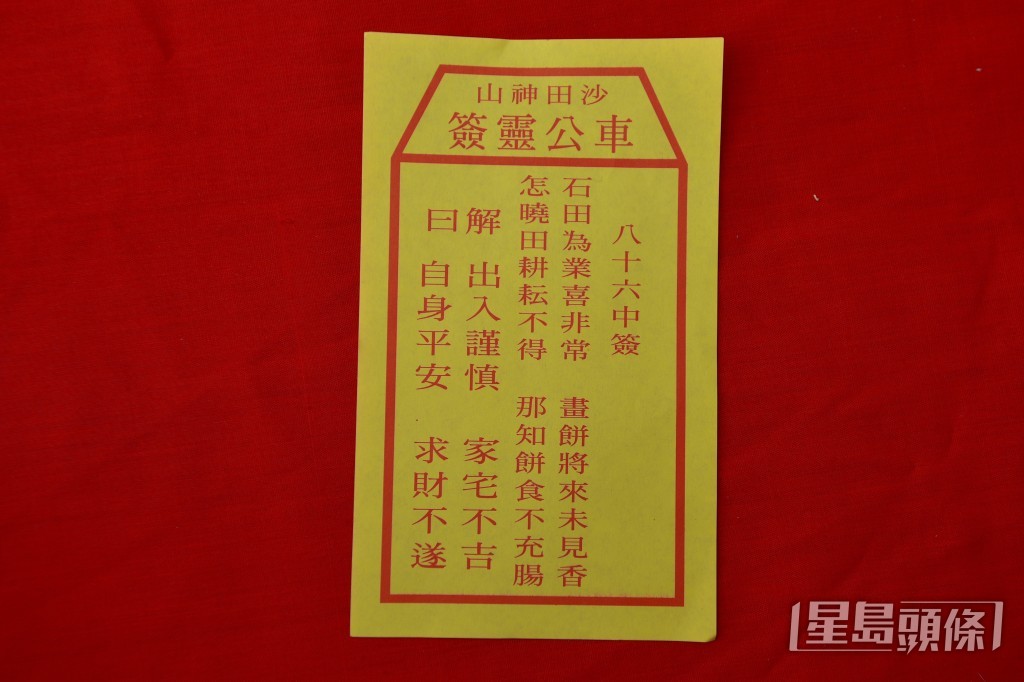 沙田神山
車公靈簽
八十六中簽
石田為業喜非常 畫餅將來未見香
怎曉田耕耘不得 那知餅食不充腸
解 出入謹慎 家宅不吉
曰 自身平安 求財不遂
星島頭條